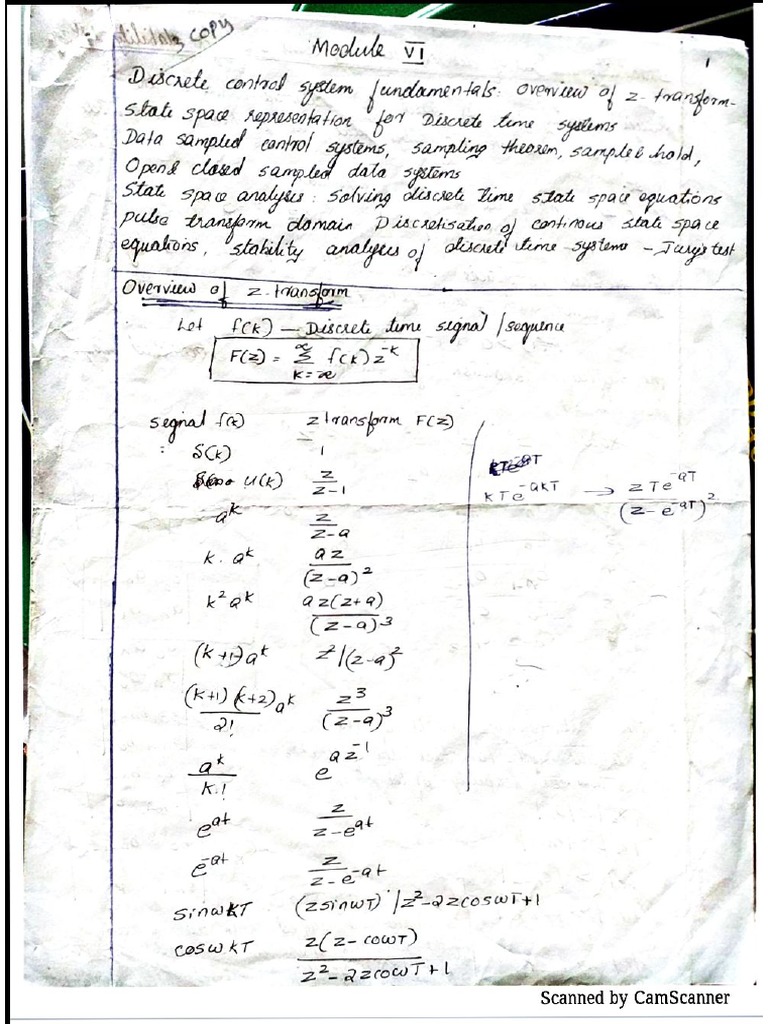 COPY
Module VI
1
Discrete control system fundamentals: Overview of z-transform-
state space representation for Discrete time systems
Data sampled control systems, sampling theorem, sample & hold,
Open & closed sampled data systems
State space analysis: solving discrete time state space equations
pulse transform domain Discretisation of continous state space
equations, stability analysis of discrete time systems - Jury's test
Overview of z-transform
Let f(k) — Discrete time signal / sequence
F(z) = ∞ Σ k=∞ f(k) z^-k
Segnal f(k) z transform F(z)
: δ(k) 1
u(k) z/(z-1)
kTe^-akT → zTe^-aT/(z-e^-aT)^2
a^k z/(z-a)
k.a^k az/(z-a)^2
k^2 a^k az(z+a)/(z-a)^3
(k+1)a^k z^2/(z-a)^2
(k+1)(k+2)/2! a^k z^3/(z-a)^3
a^k/k! e^az^-1
e^at z/(z-e^at)
e^-at z/(z-e^-at)
sinωkT (zsinωT)/z^2-2zcosωT+1
cosωkT z(z-coωT)/(z^2-2zcoωT+1)
Scanned by CamScanner